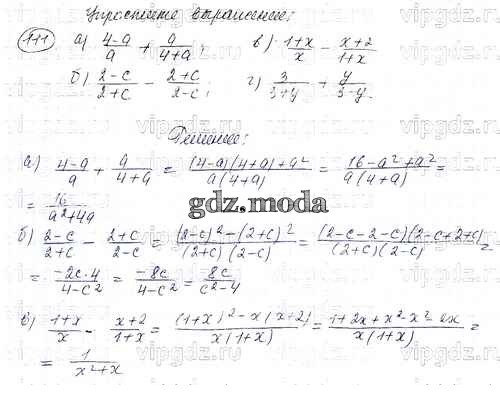 Упростите выражение:
111 а) (4-a)/a + a/(4+a); в) (1+x)/x - (x+2)/(1+x)
б) (2-c)/(2+c) - (2+c)/(2-c); г) 3/(3+y) + y/(3-y).
Решение:
а) (4-a)/a + a/(4+a) = ((4-a)(4+a)+a²)/(a(4+a)) = (16-a²+a²)/(a(4+a)) =
= 16/(a²+4a)
gdz.moda
б) (2-c)/(2+c) - (2+c)/(2-c) = ((2-c)²-(2+c)²)/((2+c)(2-c)) = ((2-c-2-c)(2-c+2+c))/((2+c)(2-c)) =
= (-2c·4)/(4-c²) = (-8c)/(4-c²) = 8c/(c²-4)
в) (1+x)/x - (x+2)/(1+x) = ((1+x)²-x(x+2))/(x(1+x)) = (1+2x+x²-x²-2x)/(x(1+x)) =
= 1/(x²+x)